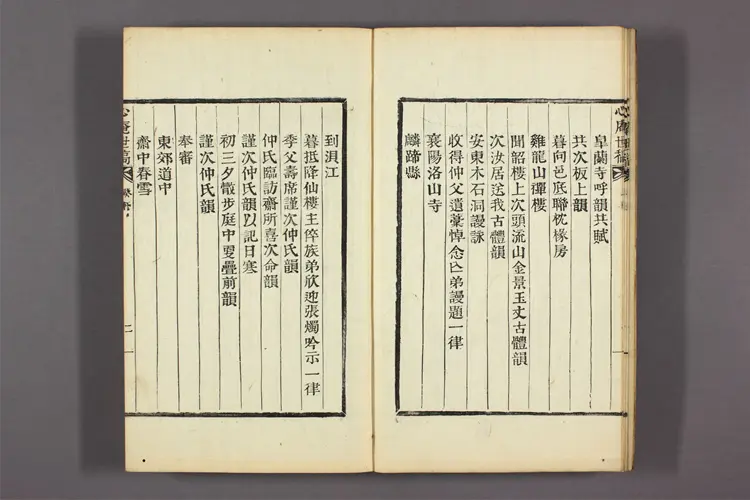 心庵世稿
皐蘭寺呼韻共賦
共次板上韻
暮向邑底聯枕椽房
雞龍山彈樓
聞韶樓上次頭流山金景玉丈古體韻
次汝居送我古體韻
安東木石洞謾詠
收得仲父遺藁悼念亡弟謾題一律
襄陽洛山寺
麟蹄縣
到浿江
暮抵降仙樓主倅族弟欣迎張燭吟示一律
季父壽席謹次仲氏韻
仲氏臨訪齋所喜次命韻
謹次仲氏韻以記日寒
初三夕散步庭中更疊前韻
謹次仲氏韻
奉審
東郊道中
齋中春雪
心庵世稿
二